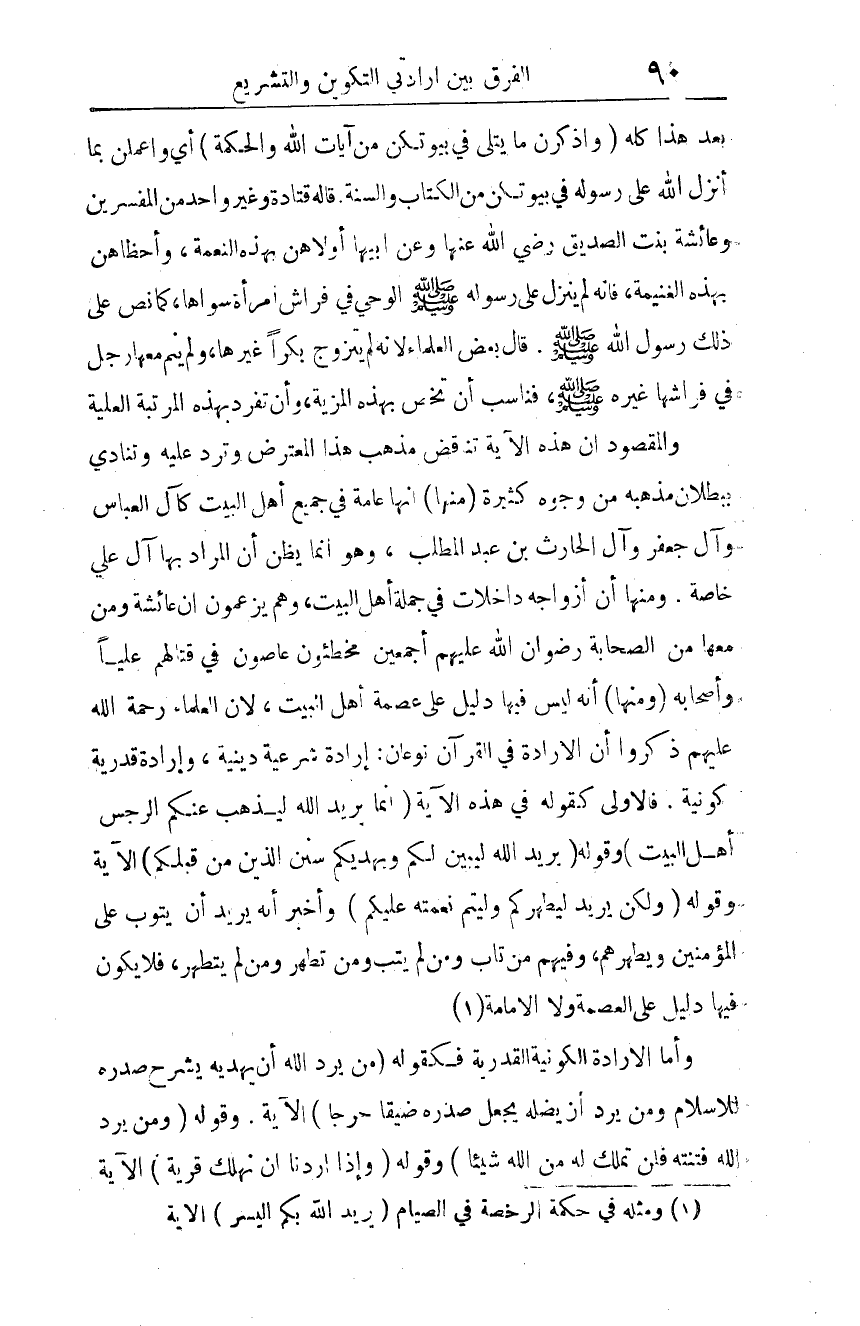 ٩٠ الفرق بين ارادتي التكوين والتشريع
بعد هذا كله ( واذكرن ما يتلى في بيوتكن من آيات الله والحكمة ) أي واعملن بما
أنزل الله على رسوله في بيوتكن من الكتاب والسنة. قاله قتادة وغير واحد من المفسرين
وعائشة بنت الصديق رضي الله عنها وعن ابيها أولاهن بهذه النعمة، وأحظاهن
بهذه الغنيمة، فانه لم ينزل على رسوله ﷺ الوحي في فراش امرأة سواها، كما نص على
ذلك رسول الله ﷺ . قال بعض العلماء لانه لم يتزوج بكراً غيرها، ولم ينم معها رجل
في فراشها غيره ﷺ، فناسب أن تخص بهذه المزية، وأن تفرد بهذه المرتبة العلية
والمقصود ان هذه الآية تناقض مذهب هذا المعترض وترد عليه وتنادي
ببطلان مذهبه من وجوه كثيرة (منها) انها عامة في جميع أهل البيت كآل العباس
وآل جعفر وآل الحارث بن عبد المطلب ، وهو انما يظن أن المراد بها آل علي
خاصة . ومنها أن أزواجه داخلات في جملة أهل البيت، وهم يزعمون ان عائشة ومن
معها من الصحابة رضوان الله عليهم أجمعين مخطئون عاصون في قتالهم عليـاً
وأصحابه (ومنها) أنه ليس فيها دليل على عصمة أهل البيت ، لان العلماء رحمة الله
عليهم ذكروا أن الارادة في القرآن نوعان: إرادة شرعية دينية ، وإرادة قدرية
كونية . فالاولى كقوله في هذه الآية ( انما يريد الله ليـذهب عنكم الرجس
أهـل البيت )وقوله( يريد الله ليبين لكم ويهديكم سنن الذين من قبلكم) الآية
وقوله ( ولكن يريد ليطهركم وليتم نعمته عليكم ) وأخبر أنه يريد أن يتوب على
المؤمنين ويطهرهم، وفيهم من تاب ومن لم يتب ومن تطهر ومن لم يتطهر، فلا يكون
فيها دليل على العصمة ولا الامامة(١)
وأما الارادة الكونية القدرية فـكقوله (من يرد الله أن يهديه يشرح صدره
للاسلام ومن يرد أن يضله يجعل صدره ضيقا حرجا ) الآية . وقوله ( ومن يرد
الله فتنته فلن تملك له من الله شيئا ) وقوله ( وإذا اردنا ان نهلك قرية ) الآية
(١) ومثله في حكمة الرخصة في الصيام ( يريد الله بكم اليسر ) الاية